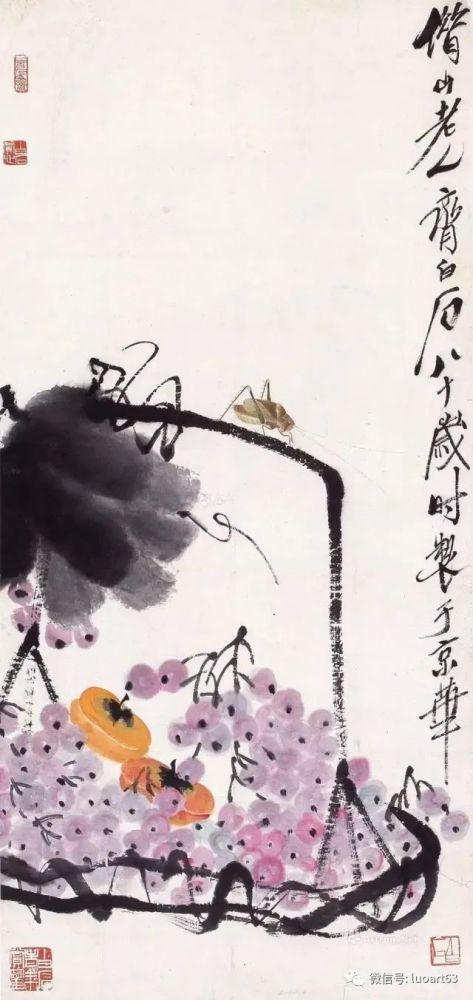 借山老人齊白石八十歲時製于京華
微信号: luoart63